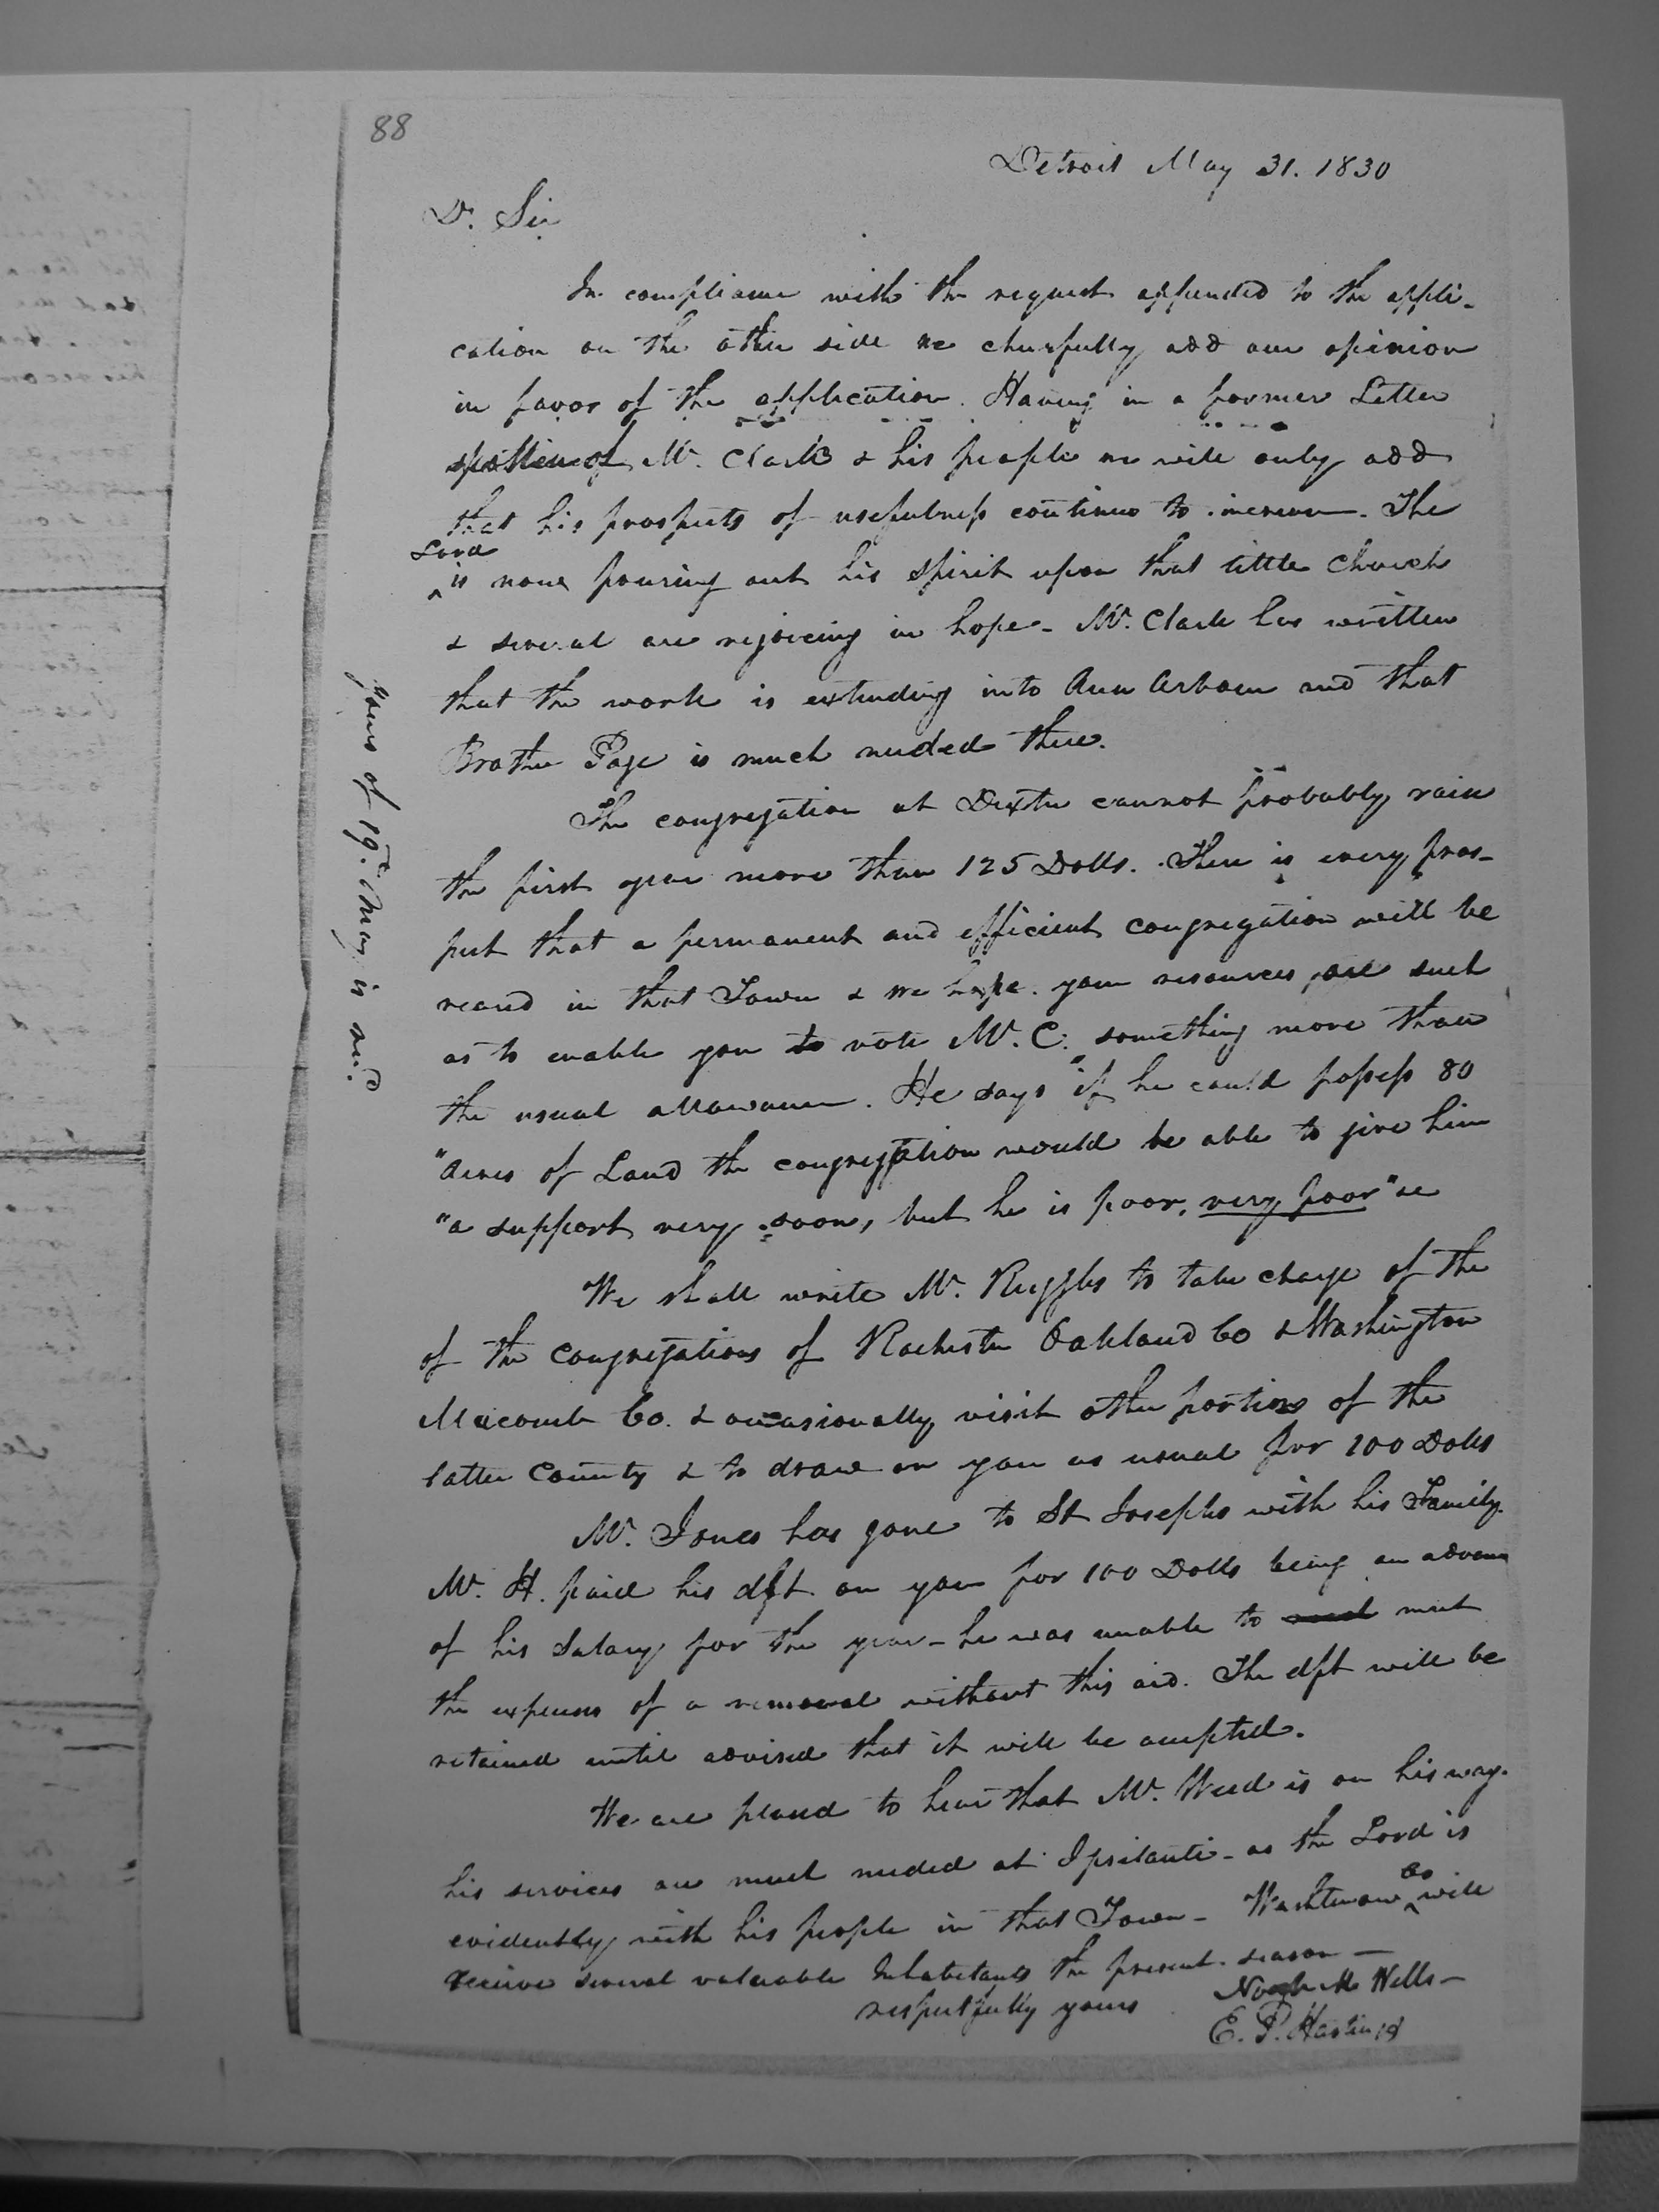 88
Detroit May 31. 1830
Dr. Sir
In compliance with the request appended to the appli-
cation on the other side we cheerfully add our opinion
in favor of the application. Having in a former Letter
spoken of Mr. Clark & his people we will only add
that his prospects of usefulness continue to increase. The
Lord
^ is now pouring out his spirit upon that little church
& several are rejoicing in hope - Mr. Clark has written
that the work is extending into Ann Arbour and that
Brother Page is much needed there.
The congregation at Dexter cannot probably raise
the first year more than 125 Dolls. There is every pros-
pect that a permanent and efficient congregation will be
reared in that Town & we hope your resources are such
as to enable you to vote Mr. C. something more than
the usual allowance. He says "if he could possess 80
"Acres of Land the congregation would be able to give him
"a support very soon, but he is poor, very poor" &c
We shall write Mr. Ruggles to take charge of the
of the congregations of Rochester Oakland Co & Washington
Macomb Co. & occasionally visit other portions of the
latter County & to draw on you as usual for 100 Dolls
Mr. Jones has gone to St Josephs with his Family.
Mr. H. paid his dft on you for 100 Dolls being an advance
of his Salary for the year - he was unable to meet
the expenses of a removal without this aid. The dft will be
retained until advised that it will be accepted.
We are pleased to hear that Mr. Weed is on his way.
his services are much needed at Ipsilanti - as the Lord is
evidently with his people in that Town - Washtenaw Co ^ will
receive several valuable Inhabitants the present season -
respectfully yours
Noah M Wells -
E. P. Hastings
yours of 19th. May is recd.